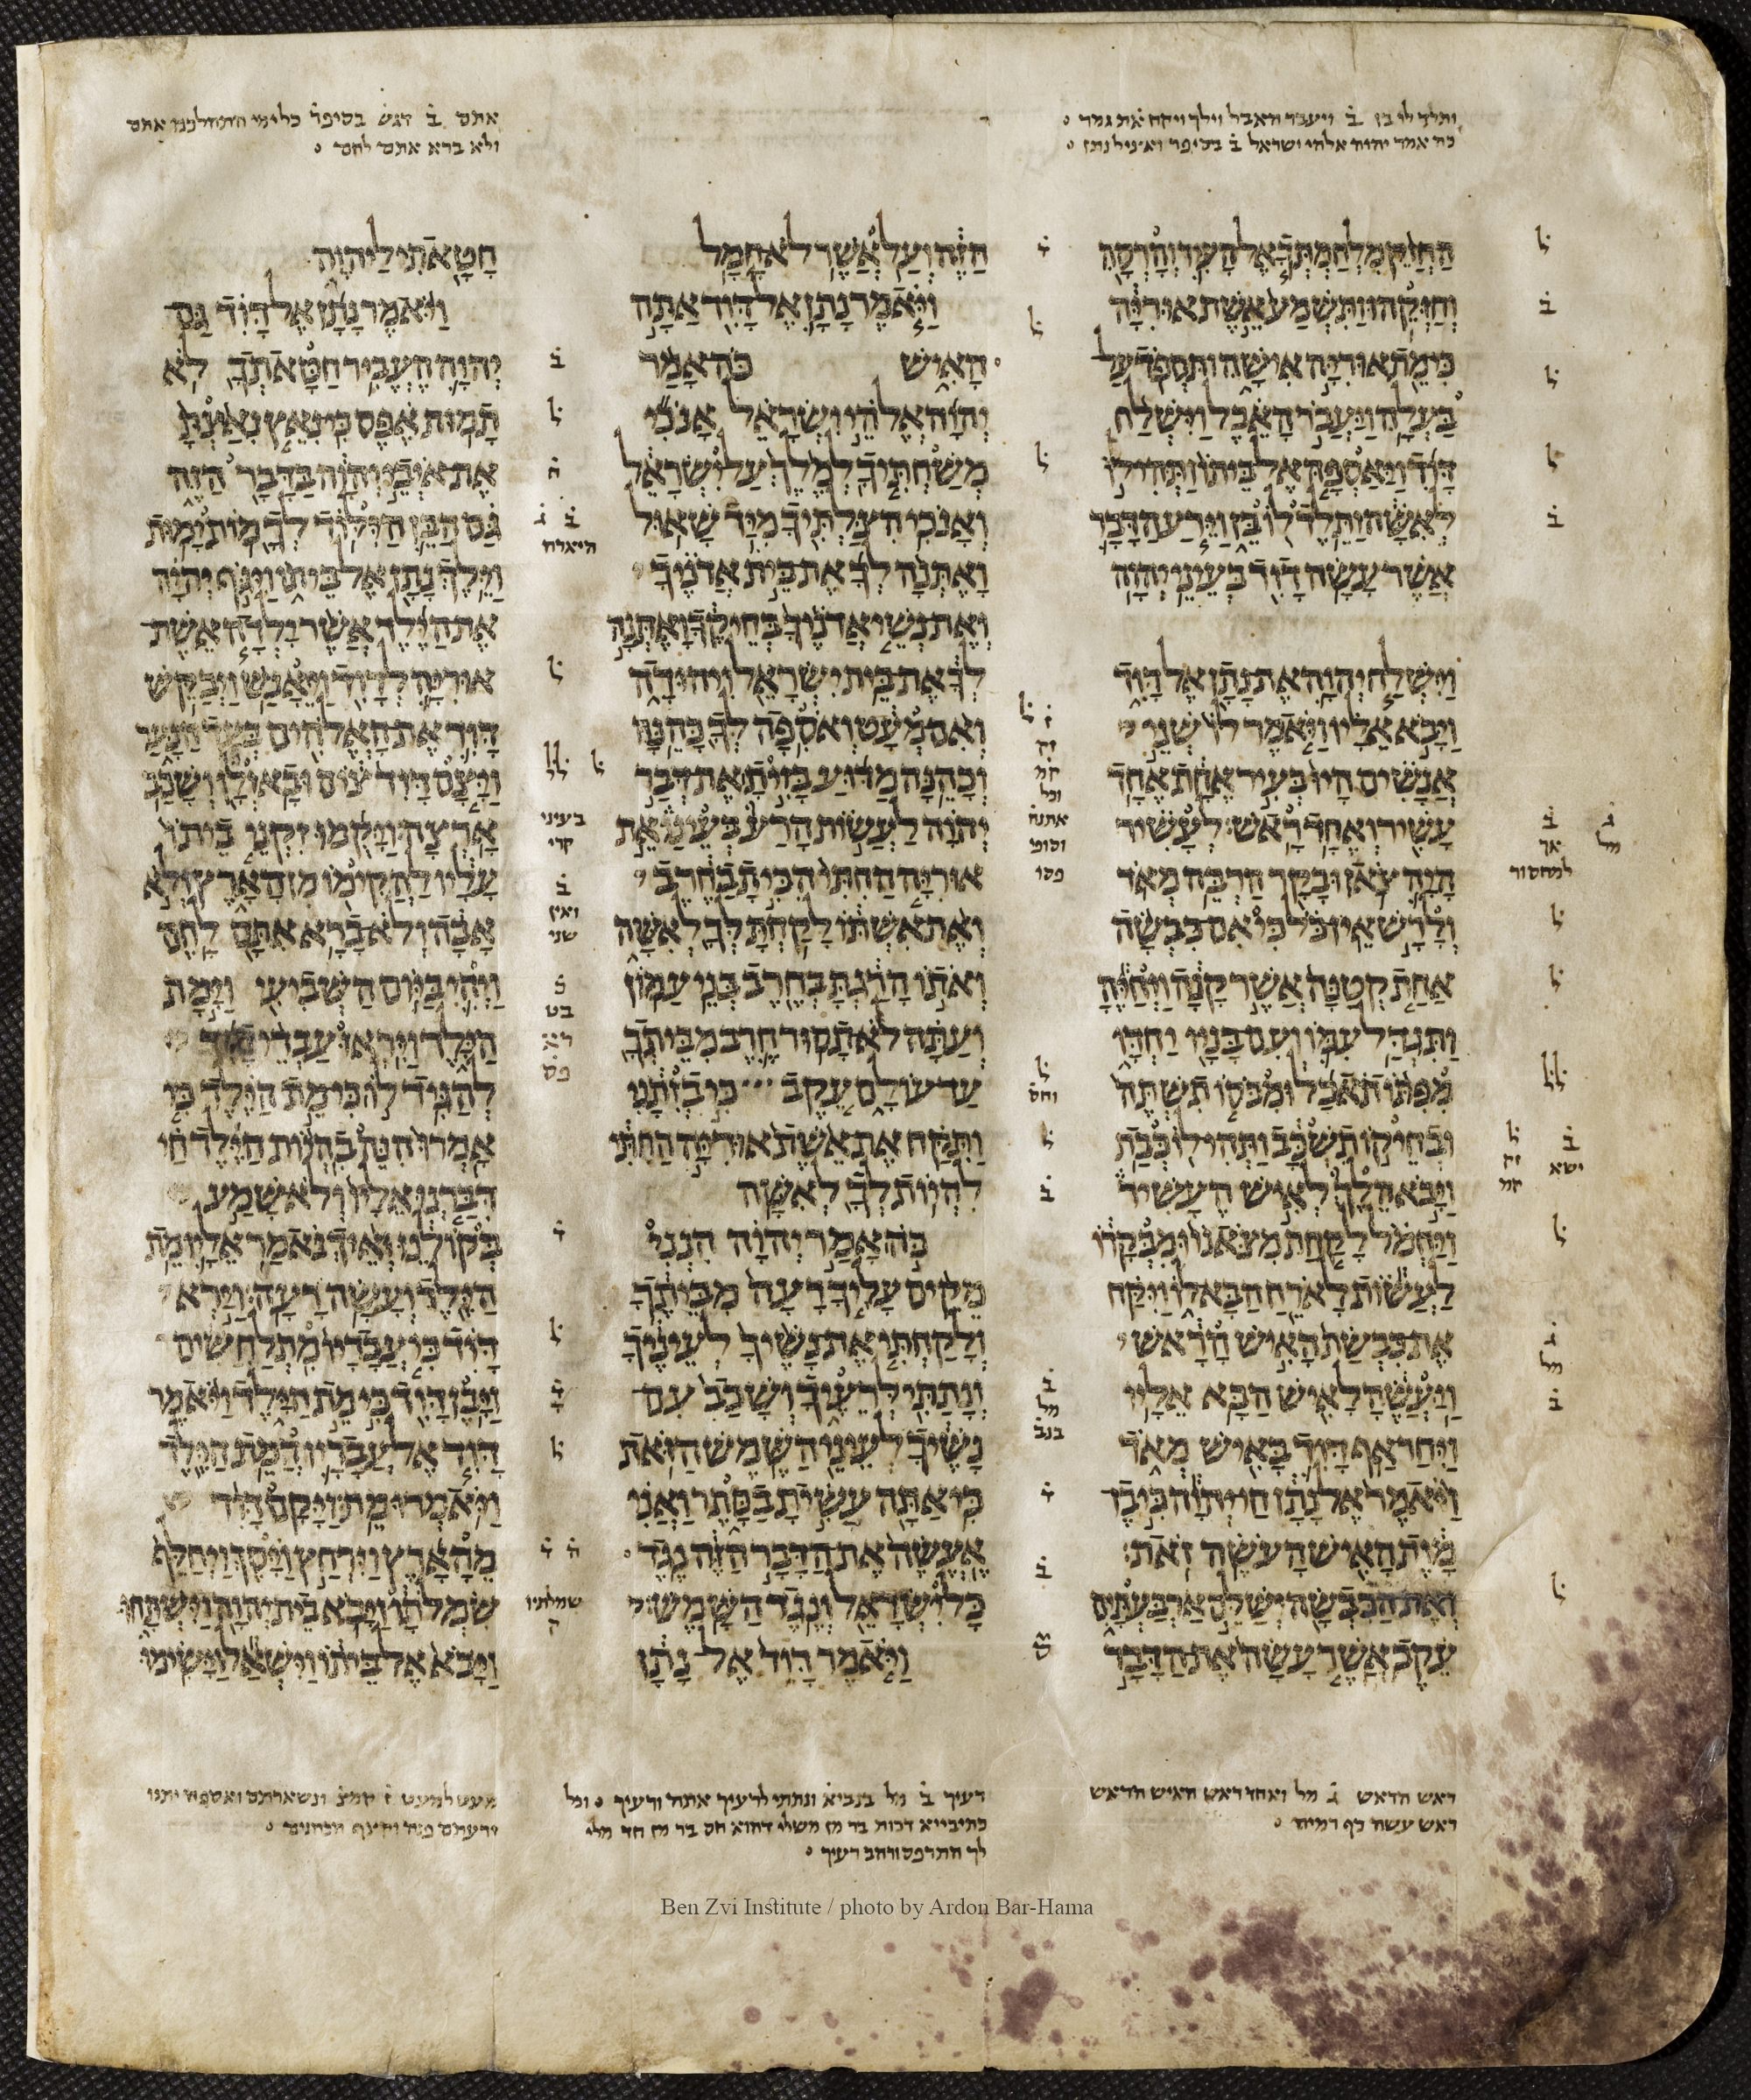 ותלד לו בן ב̇ ויעבר האבל וילך ויקח את גמר
כה אמר יהוה אלהי ישראל ב̇ בסיפר
אתם ב̇ דגש בסיפר כל ימי התהלכנו אתם
ולא ברא אתם לחם
הַחֲזֵק מִלְחַמְתְּךָ אֶל הָעִיר וְהָרְסָהּ
וְחַזְּקֵהוּ וַתִּשְׁמַע אֵשֶׁת אוּרִיָּה
כִּי מֵת אוּרִיָּה אִישָׁהּ וַתִּסְפֹּד עַל
בַּעְלָהּ וַיַּעֲבֹר הָאֵבֶל וַיִּשְׁלַח
דָּוִד וַיַּאַסְפָהּ אֶל בֵּיתוֹ וַתְּהִי לוֹ
לְאִשָּׁה וַתֵּלֶד לוֹ בֵּן וַיֵּרַע הַדָּבָר
אֲשֶׁר עָשָׂה דָוִד בְּעֵינֵי יְהוָה
וַיִּשְׁלַח יְהוָה אֶת נָתָן אֶל דָּוִד
וַיָּבֹא אֵלָיו וַיֹּאמֶר לוֹ שְׁנֵי
אֲנָשִׁים הָיוּ בְּעִיר אֶחָת אֶחָד
עָשִׁיר וְאֶחָד רָאשׁ׃ לְעָשִׁיר
הָיָה צֹאן וּבָקָר הַרְבֵּה מְאֹד
וְלָרָשׁ אֵין כֹּל כִּי אִם כִּבְשָׂה
אַחַת קְטַנָּה אֲשֶׁר קָנָה וַיְחַיֶּהָ
וַתִּגְדַּל עִמּוֹ וְעִם בָּנָיו יַחְדָּו
מִפִּתּוֹ תֹאכַל וּמִכֹּסוֹ תִשְׁתֶּה
וּבְחֵיקוֹ תִשְׁכָּב וַתְּהִי לוֹ כְּבַת
וַיָּבֹא הֵלֶךְ לְאִישׁ הֶעָשִׁיר
וַיַּחְמֹל לָקַחַת מִצֹּאנוֹ וּמִבְּקָרוֹ
לַעֲשׂוֹת לָאֹרֵחַ הַבָּא לוֹ וַיִּקַּח
אֶת כִּבְשַׂת הָאִישׁ הָרָאשׁ
וַיַּעֲשֶׂהָ לָאִישׁ הַבָּא אֵלָיו
וַיִּחַר אַף דָּוִד בָּאִישׁ מְאֹד
וַיֹּאמֶר אֶל נָתָן חַי יְהוָה כִּי בֶן
מָוֶת הָאִישׁ הָעֹשֶׂה זֹאת׃
וְאֶת הַכִּבְשָׂה יְשַׁלֵּם אַרְבַּעְתָּיִם
עֵקֶב אֲשֶׁר עָשָׂה אֶת הַדָּבָר
הַזֶּה וְעַל אֲשֶׁר לֹא חָמָל
וַיֹּאמֶר נָתָן אֶל דָּוִד אַתָּה
הָאִישׁ כֹּה אָמַר
יְהוָה אֱלֹהֵי יִשְׂרָאֵל אָנֹכִי
מְשַׁחְתִּיךָ לְמֶלֶךְ עַל יִשְׂרָאֵל
וְאָנֹכִי הִצַּלְתִּיךָ מִיַּד שָׁאוּל
וָאֶתְּנָה לְךָ אֶת בֵּית אֲדֹנֶיךָ
וְאֶת נְשֵׁי אֲדֹנֶיךָ בְּחֵיקֶךָ וָאֶתְּנָה
לְךָ אֶת בֵּית יִשְׂרָאֵל וִיהוּדָה
וְאִם מְעָט וְאֹסִפָה לְּךָ כָּהֵנָּה
וְכָהֵנָּה מַדּוּעַ בָּזִיתָ אֶת דְּבַר
יְהוָה לַעֲשׂוֹת הָרַע בְּעֵינַו אֵת
אוּרִיָּה הַחִתִּי הִכִּיתָ בַחֶרֶב
וְאֶת אִשְׁתּוֹ לָקַחְתָּ לְּךָ לְאִשָּׁה
וְאֹתוֹ הָרַגְתָּ בְּחֶרֶב בְּנֵי עַמּוֹן
וְעַתָּה לֹא תָסוּר חֶרֶב מִבֵּיתְךָ
עַד עוֹלָם עֵקֶב כִּי בְזִתָנִי
וַתִּקַּח אֶת אֵשֶׁת אוּרִיָּה הַחִתִּי
לִהְיוֹת לְךָ לְאִשָּׁה
כֹּה אָמַר יְהוָה הִנְנִי
מֵקִים עָלֶיךָ רָעָה מִבֵּיתֶךָ
וְלָקַחְתִּי אֶת נָשֶׁיךָ לְעֵינֶיךָ
וְנָתַתִּי לְרֵעֶיךָ וְשָׁכַב עִם
נָשֶׁיךָ לְעֵינֵי הַשֶּׁמֶשׁ הַזֹּאת
כִּי אַתָּה עָשִׂיתָ בַסָּתֶר וַאֲנִי
אֶעֱשֶׂה אֶת הַדָּבָר הַזֶּה נֶגֶד
כָּל יִשְׂרָאֵל וְנֶגֶד הַשָּׁמֶשׁ׃
וַיֹּאמֶר דָּוִד אֶל נָתָן
חָטָאתִי לַיהוָה
וַיֹּאמֶר נָתָן אֶל דָּוִד גַּם
יְהוָה הֶעֱבִיר חַטָּאתְךָ לֹא
תָמוּת אֶפֶס כִּי נִאֵץ נִאַצְתָּ
אֶת אֹיְבֵי יְהוָה בַּדָּבָר הַזֶּה
גַּם הַבֵּן הַיִּלּוֹד לְךָ מוֹת יָמוּת
וַיֵּלֶךְ נָתָן אֶל בֵּיתוֹ וַיִּגֹּף יְהוָה
אֶת הַיֶּלֶד אֲשֶׁר יָלְדָה אֵשֶׁת
אוּרִיָּה לְדָוִד וַיֵּאָנַשׁ וַיְבַקֵּשׁ
דָּוִד אֶת הָאֱלֹהִים בְּעַד הַנָּעַר
וַיָּצָם דָּוִד צוֹם וּבָא וְלָן וְשָׁכַב
אָרְצָה וַיָּקֻמוּ זִקְנֵי בֵיתוֹ
עָלָיו לַהֲקִימוֹ מִן הָאָרֶץ וְלֹא
אָבָה וְלֹא בָרָא אִתָּם לָחֶם
וַיְהִי בַּיּוֹם הַשְּׁבִיעִי וַיָּמָת
הַיָּלֶד וַיִּרְאוּ עַבְדֵי דָוִד
לְהַגִּיד לוֹ כִּי מֵת הַיֶּלֶד כִּי
אָמְרוּ הִנֵּה בִהְיוֹת הַיֶּלֶד חַי
דִּבַּרְנוּ אֵלָיו וְלֹא שָׁמַע
בְּקוֹלֵנוּ וְאֵיךְ נֹאמַר אֵלָיו מֵת
הַיֶּלֶד וְעָשָׂה רָעָה׃ וַיַּרְא
דָּוִד כִּי עֲבָדָיו מִתְלַחֲשִׁים
וַיָּבֶן דָּוִד כִּי מֵת הַיָּלֶד וַיֹּאמֶר
דָּוִד אֶל עֲבָדָיו הֲמֵת הַיֶּלֶד
וַיֹּאמְרוּ מֵת וַיָּקָם דָּוִד
מֵהָאָרֶץ וַיִּרְחַץ וַיָּסֶךְ וַיְחַלֵּף
שִׂמְלֹתָו וַיָּבֹא בֵית יְהוָה וַיִּשְׁתָּחוּ
וַיָּבֹא אֶל בֵּיתוֹ וַיִּשְׁאַל וַיָּשִׂימוּ
ראש הראש ג̇ מל ואחד ראש האיש הראש
ראש עשה כף רמיה
רעיך ב̇ מל בנביא ונתתי לרעיך אתה ורעיך וכל
כתיבייא דכות בר מן משלי דהוא חס בר מן חד מלי
לך התרפס ורהב רעיך
מעט למעט ז̇ קמצ ונשארתם ואספה יתנו
Ben Zvi Institute / photo by Ardon Bar-Hama